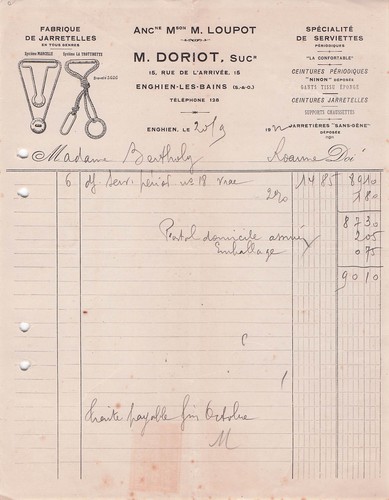 FABRIQUE
DE JARRETELLES
EN TOUS GENRES
Système MARCELLE Système LA TROTTINETTE
Breveté SGDG
ANC^NE M^SON M. LOUPOT
M. DORIOT, SUC^R
15, RUE DE L'ARRIVÉE, 15
ENGHIEN-LES-BAINS (S.-&-O.)
TÉLÉPHONE 128
SPÉCIALITÉ
DE SERVIETTES
PÉRIODIQUES
"LA CONFORTABLE"
CEINTURES PÉRIODIQUES
"NINON" DÉPOSÉS
GANTS TISSU ÉPONGE
CEINTURES JARRETELLES
SUPPORTS CHAUSSETTES
JARRETIÈRES "SANS-GÊNE"
DÉPOSÉS
ENGHIEN, LE 20/9 19
Madame Bertholy Roanne
6 serv. périod. nº 18 14 85 89 10
2% 1 80
87 30
Port domicile 2 05
Emballage 0 75
90 10
traite payable fin Octobre
M